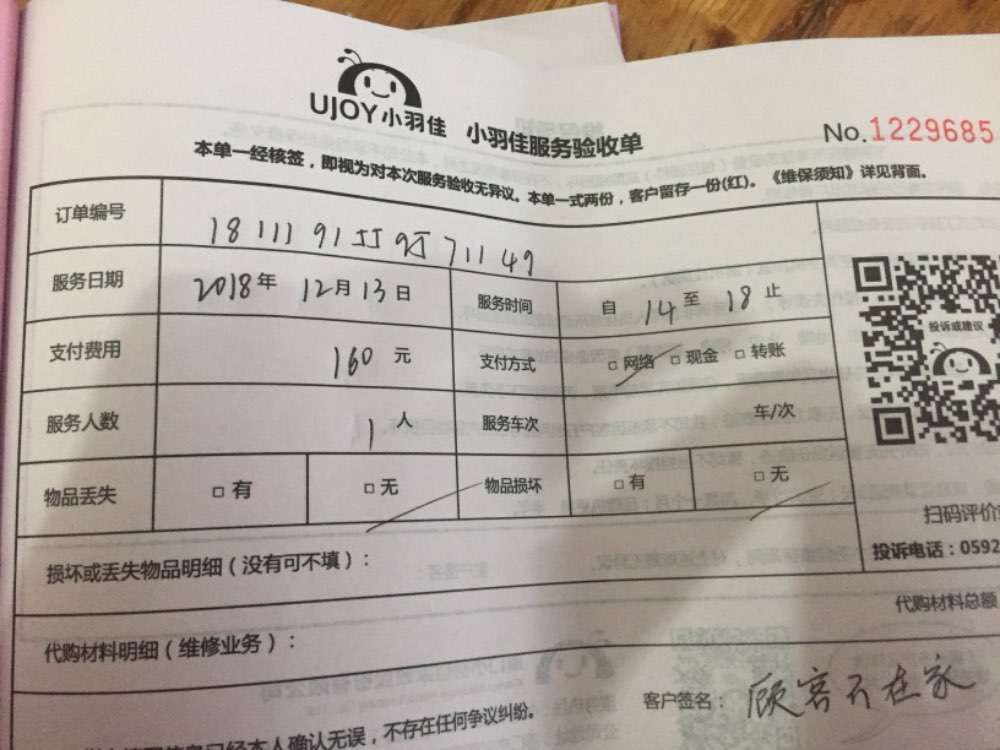 UJOY小羽佳 小羽佳服务验收单 No.1229685
本单一经核签，即视为对本次服务验收无异议。本单一式两份，客户留存一份(红)。《维保须知》详见背面。
订单编号
服务日期 2018年 12月 13日 服务时间 自 14 至 18 止
支付费用 160 元 支付方式 □网络 □现金 □转账
服务人数 1 人 服务车次 车/次
物品丢失 □有 □无 物品损坏 □有 □无
投诉或建议
扫码评价
投诉电话：0592
损坏或丢失物品明细（没有可不填）：
代购材料总额
代购材料明细（维修业务）：
客户签名： 顾客不在家
已经本人确认无误，不存在任何争议纠纷。